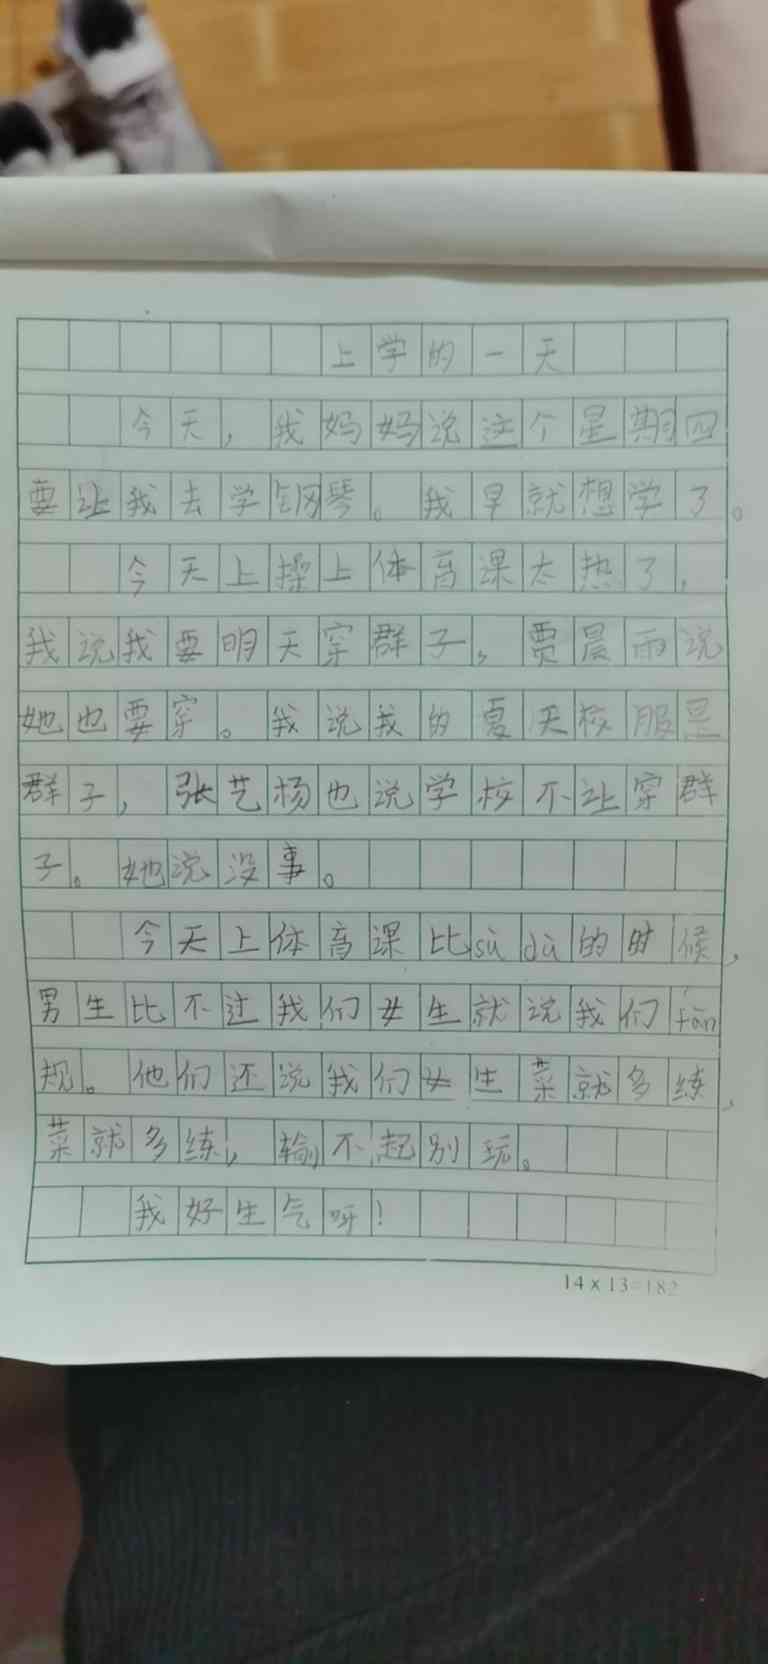 上学的一天
今天，我妈妈说这个星期四
要让我去学钢琴。我早就想学了。
今天上操上体育课太热了，
我说我要明天穿群子，贾晨雨说
她也要穿。我说我的夏天校服是
群子，张艺杨也说学校不让穿群
子。她说没事。
今天上体育课比sù dù的时候，
男生比不过我们女生就说我们fàn
规。他们还说我们女生菜就多练，
菜就多练，输不起别玩。
我好生气呀！
14×13=182